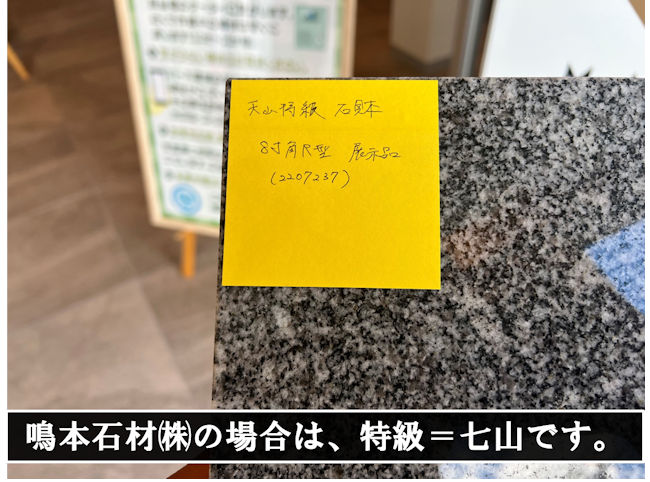 天山特級 石見本
8寸角R型 展示品
(2207237)
鳴本石材㈱の場合は、特級＝七山です。